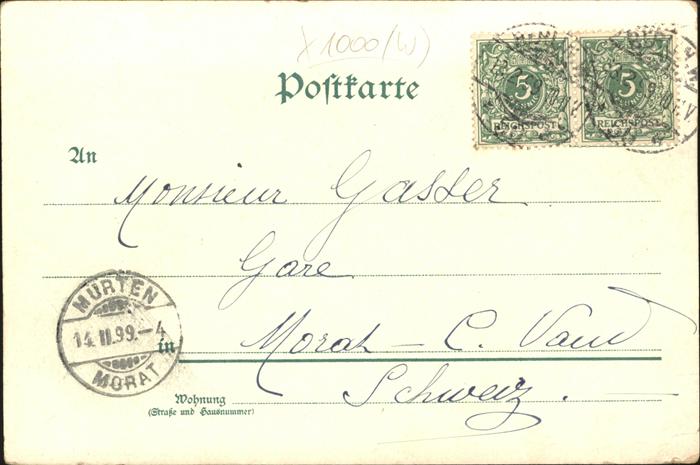 X1000 (W)
Postkarte
5 5
REICHSPOST REICHSPOST
An
Monsieur Gasser
Gare
MURTEN
14.II.99.-4
MORAT
in Morat – C. Vaud
Schweiz.
Wohnung
(Straße und Hausnummer)